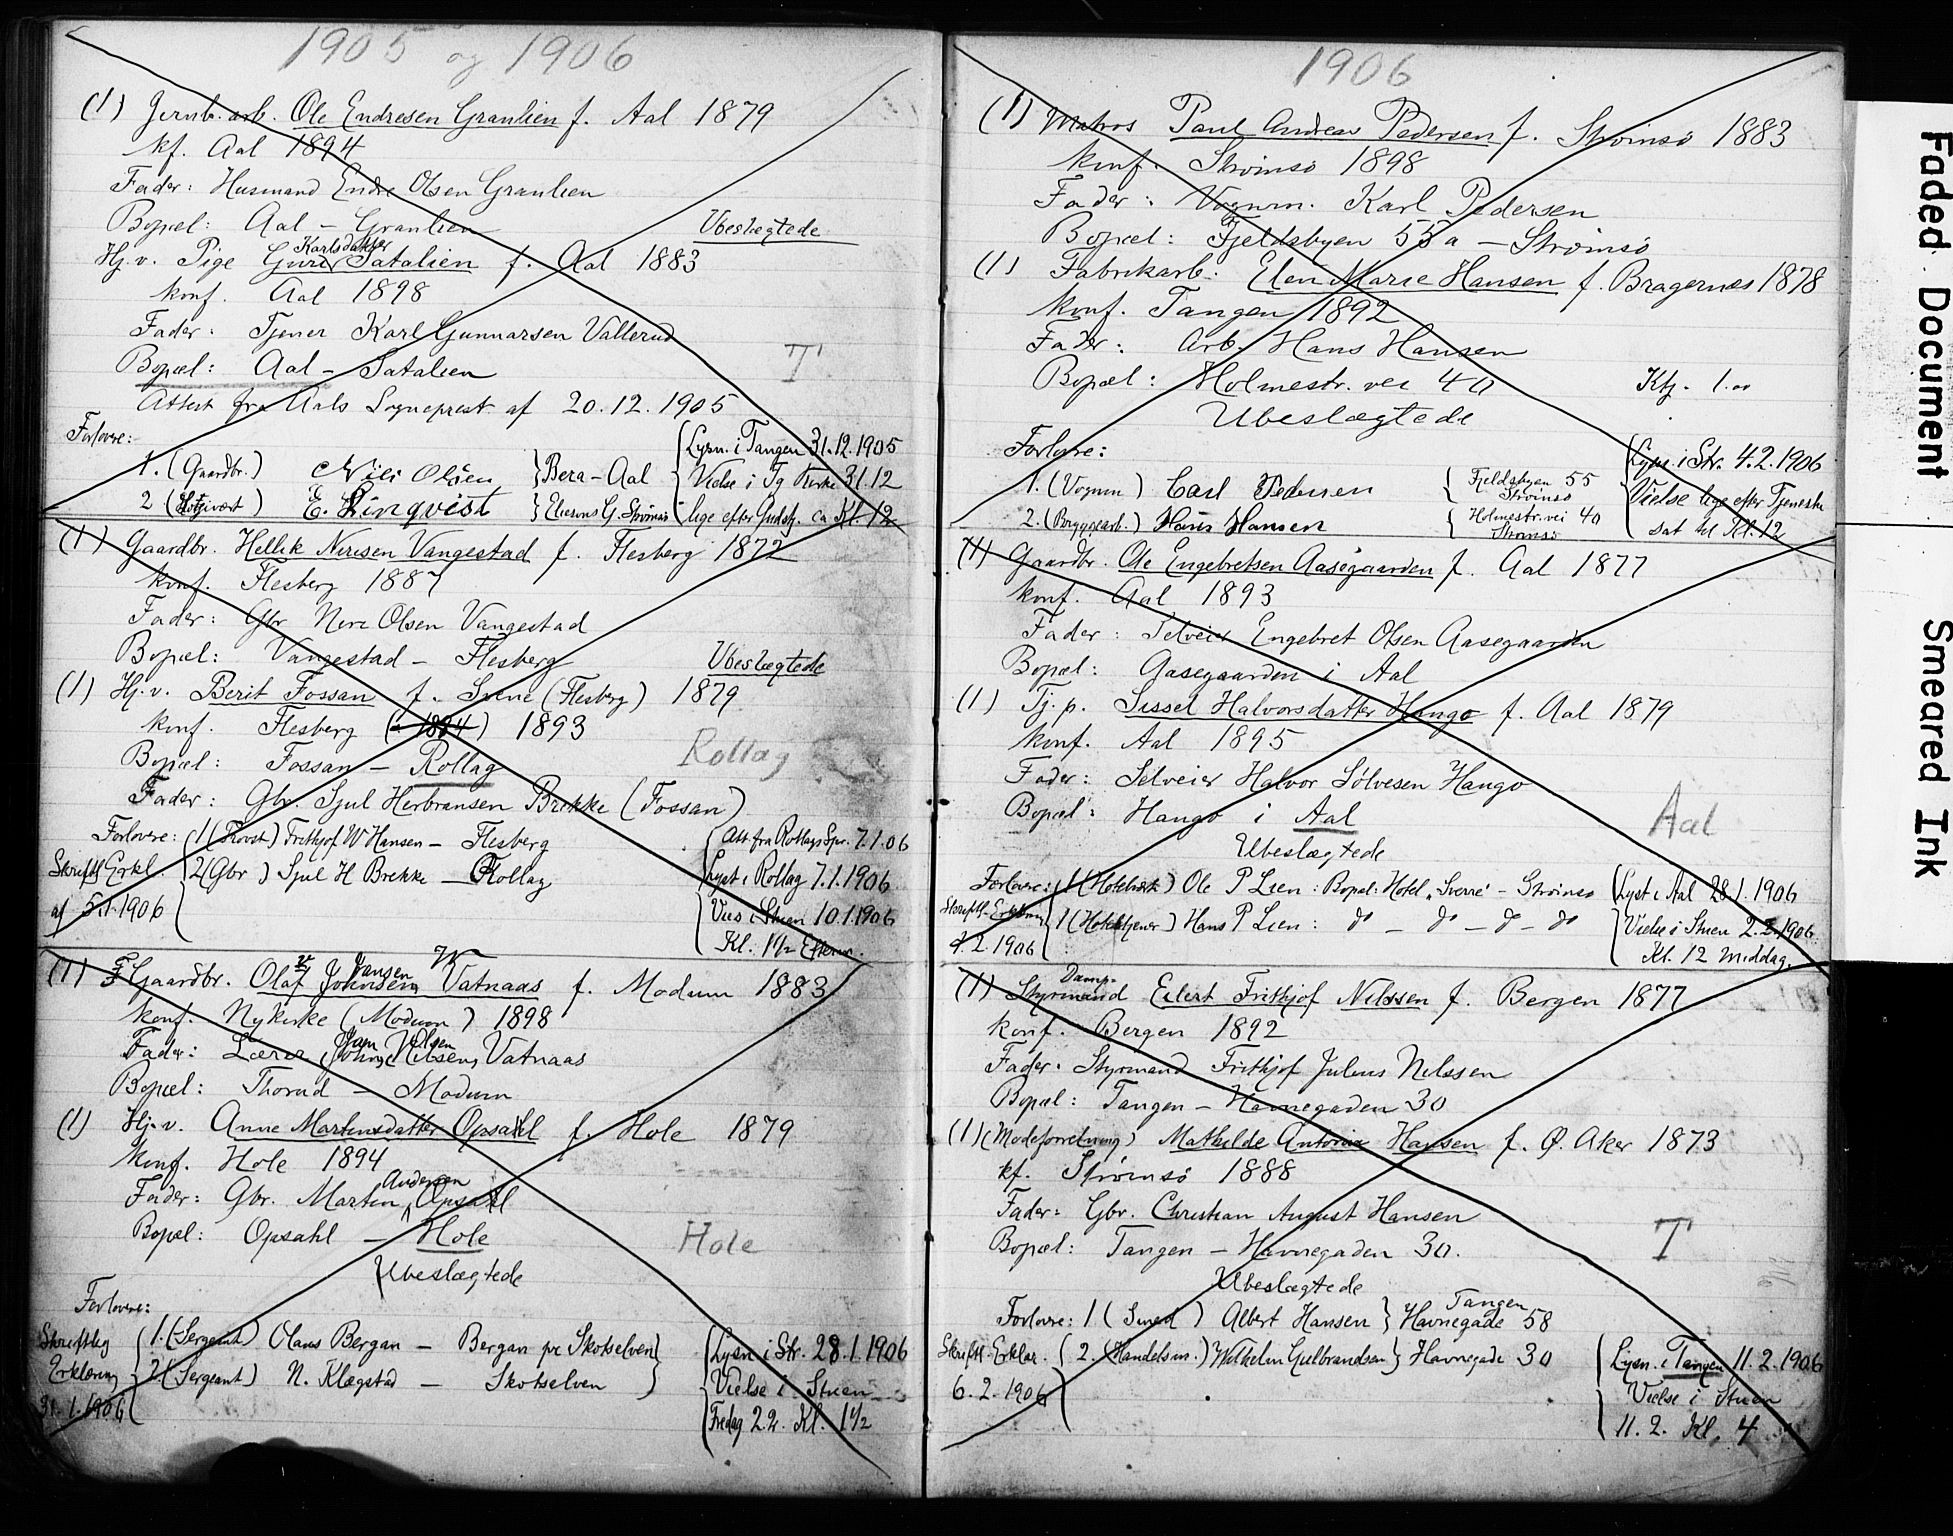 1905 og 1906
(1) Jernb. arb. Ole Endresen Granlien f. Aal 1879
kf. Aal 1894
Fader: Husmand Endre Olsen Granlien
Bopæl: Aal - Granlien
Ubeslægtede
Karlsdatter
Hj. v. Pige Guri Satalien f. Aal 1883
konf. Aal 1898
Fader: Tjener Karl Gunnarsen Vallerud
Bopæl: Aal - Satalien
T
Attest fra Aals Sogneprest af 20.12.1905
Forlovere:
1. (Gaardbr.) Nils Olsen } Bera - Aal
2 ( ) E. Linqvist } G. Strømsø
Lysn. i Tangen 31.12.1905
Vielse i Tg Kirke 31.12
lige efter Gudstj. ca Kl. 12
(1) Gaardbr. Hellik Nirisen Vangestad f. Flesberg 1872
konf. Flesberg 1887
Fader: Gbr Nere Olsen Vangestad
Bopæl: Vangestad - Flesberg
Ubeslægtede
(1) Hj. v. Berit Fossan f. Svene (Flesberg) 1879
konf. Flesberg (1894) 1893
Bopæl: Fossan - Rollag
Rollag
Fader: Gbr. Sjul Herbransen Brekke (Fossan)
Forlovere: 1 (Provst) Frithjof W Hansen - Flesberg
Skriftl Erkl. 2 (Gbr) Sjul H Brekke - Rollag
af 5.1.1906
Att fra Rollags Spr. 7.1.06
Lyst i Rollag 7.1.1906
Viet i Stuen 10.1.1906
Kl. 1½ Efterm.
Jansen W
(1) Gaardbr. Olaf Johnsen Vatnaas f. Modum 1883
konf. Nykirke (Modum) 1898
Jan Nilsen
Fader: Lærer John Nilsen Vatnaas
Bopæl: Thorud - Modum
(1) Hj. v. Anne Martinsdatter Opsahl f. Hole 1879
konf. Hole 1894
Andersen
Fader: Gbr. Martin Opsahl
Bopæl: Opsahl - Hole
Hole
Ubeslægtede
Forlovere:
Skriftlig Erklæring 31.1.1906
1. (Sergeant) Olaus Bergan - Bergan pr Skotselven
2 (Sergeant) N. Klægstad - Skotselven
Lysn i Str. 28.1.1906
Vielse i Stuen
Fredag 2.2. Kl. 1½
1906
(1) Matros Paul Andreas Pedersen f. Strømsø 1883
konf. Strømsø 1898
Fader: Vognm. Karl Pedersen
Bopæl: Fjeldsbyen 55a - Strømsø
(1) Fabrikarb: Elen Marie Hansen f. Bragernes 1878
konf. Tangen 1892
Fader: Arb. Hans Hansen
Bopæl: Holmestr. vei 40
Ktj. 1.00
Ubeslægtede
Forlovere:
1. (Vognm) Carl Pedersen { Fjeldsbyen 55 Strømsø
2. (Bryggearb.) Hans Hansen { Holmestr. vei 40 Strømsø
Lysn. i Str. 4.2.1906
Vielse lige efter Tjeneste
sat til Kl. 12
(1) Gaardbr. Ole Engebretsen Aasegaarden f. Aal 1877
konf. Aal 1893
Fader: Selveier Engebret Olsen Aasegaarden
Bopæl: Aasegaarden i Aal
(1) Tj. p. Sissel Halvorsdatter Hango f. Aal 1879
konf. Aal 1895
Fader: Selveier Halvor Sølvesen Hango
Bopæl: Hango i Aal
Aal
Ubeslægtede
Forlovere: 1 (Hotelvert) Ole P Lien: Bopæl: Hotel "Sverre" - Strømsø
Skriftl. Erklæring 1 (Hoteltjener) Hans P Lien: do - do - do - do
2.2.1906
Lyst i Aal 28.1.1906
Vielse i Stuen 2.2.1906
Kl. 12 Middag.
Damp-
(1) Styrmand Eilert Frithjof Nilssen f. Bergen 1877
konf. Bergen 1892
Fader: Styrmand Frithjof Julius Nilssen
Bopæl: Tangen - Havnegaden 30
(1) (Modeforretning) Mathilde Antonia Hansen f. Ø. Aker 1873
kf. Strømsø 1888
Fader: Gbr. Christian August Hansen
Bopæl: Tangen - Havnegaden 30.
T
Ubeslægtede
Forlovere: 1 (Smed) Albert Hansen } Tangen Havnegade 58
Skriftl. Erklær. 2. (Handelsm.) Wilhelm Gulbrandsen } Havnegade 30
6.2.1906
Lysn. i Tangen 11.2.1906
Vielse i Stuen
11.2. Kl. 4
Faded Document
Smeared Ink